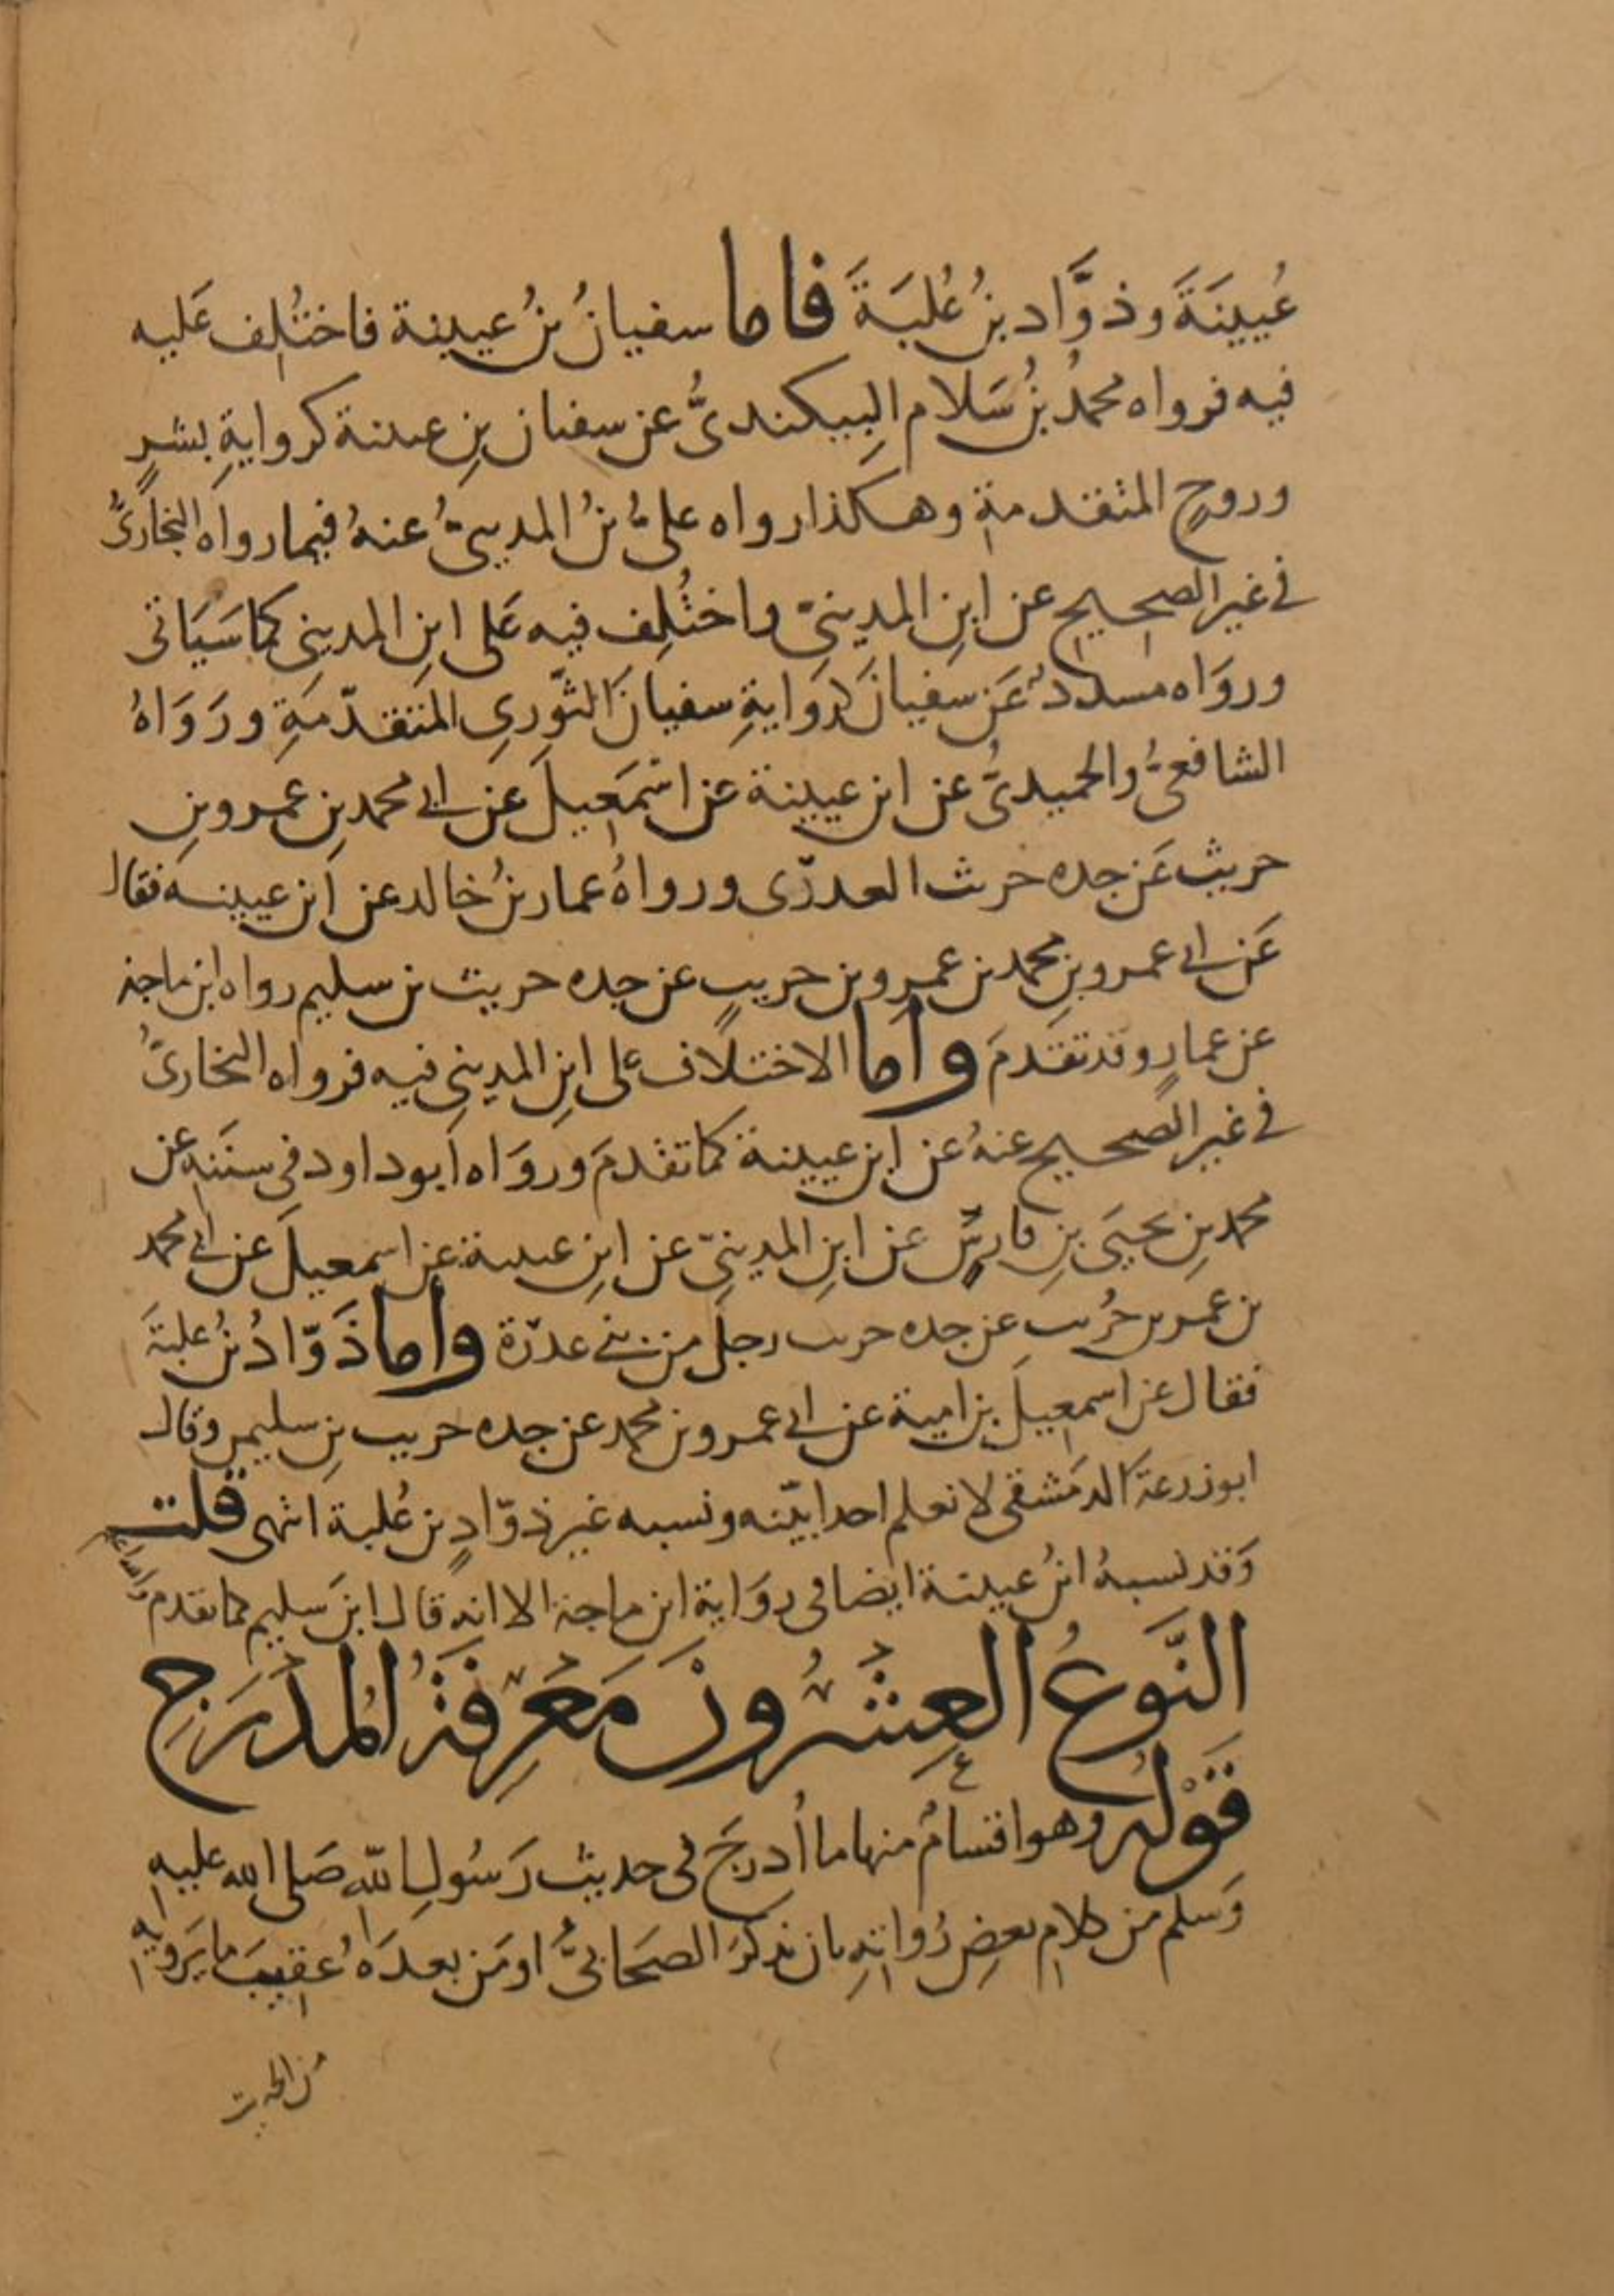 عُيينَةَ وذوَّاد بنُ عُلبَةَ فاما سفيانُ بنُ عيينة فاختُلِف عَليه
فيه فرواه محمدُ بنُ سَلام البِيكنديُّ عن سفيان بنِ عيينة كروايةِ بشرٍ
وروحٍ المتقدمةِ وهكذا رواه عليُّ بنُ المدينيُّ عنهُ فيما رواه البخاريُّ
في غير الصحيح عن ابنِ المدينيّ واختُلِف فيه عَلى ابنِ المديني كما سَيَاتى
ورواه مسددٌ عَن سفيانَ كروَايةِ سفيانَ الثّوري المتقدّمَةِ ورَوَاهُ
الشافعيُّ والحميديُّ عن ابن عيينة عن اسْمَعيلَ عن ابي محمد بنِ عمرو بنِ
حريث عَن جده حريث العذرّى ورواهُ عمار بنُ خالد عن ابن عيينة فقال
عَن ابي عمرو بنِ محمد بن عمرو بن حريثٍ عن جده حريث بن سليم رواه ابن ماجة
عن عمارٍ وقد تقَدمَ واما الاختلاف على ابنِ المديني فيه فرواه البخاريُّ
في غير الصحيح عنهُ عن ابن عيينة كما تقدمَ وروَاه ابو داود في سننه عن
محمد بنِ يحيَى بنِ فارسٍ عن ابنِ المدينيّ عن ابنِ عيينة عن اسمعيلَ عن ابي محمد
بن عمرو بن حُريث عن جده حريث رجل من بني عذرة واما ذَوّادُ بنُ علبةَ
فقال عن اسمعيلَ بن امية عن ابي عمرو بن محمد عن جده حريث بنِ سليم وقال
ابو زرعة الدمَشقى لا نعلم احدا بيّنه ونسبه غير ذوّادٍ بن عُلبة انتهى قلت
وَقد نسبهُ ابنُ عيينة ايضا في روَاية ابن ماجة الا انه قال ابن سَليم كما تقدم والله اعلم
النَّوعُ العِشْرُونَ مَعْرِفَةُ المُدْرَجِ
قَوْله وهو اقسامٌ منها ما اُدرجَ في حديث رَسُولِ الله صَلى الله عليه
وَسلم من كلامِ بعضِ رُواتِهِ بان يذكرَ الصحَابيُّ او مَن بعدَهُ عقيبَ ما يَرويه
من الحديث